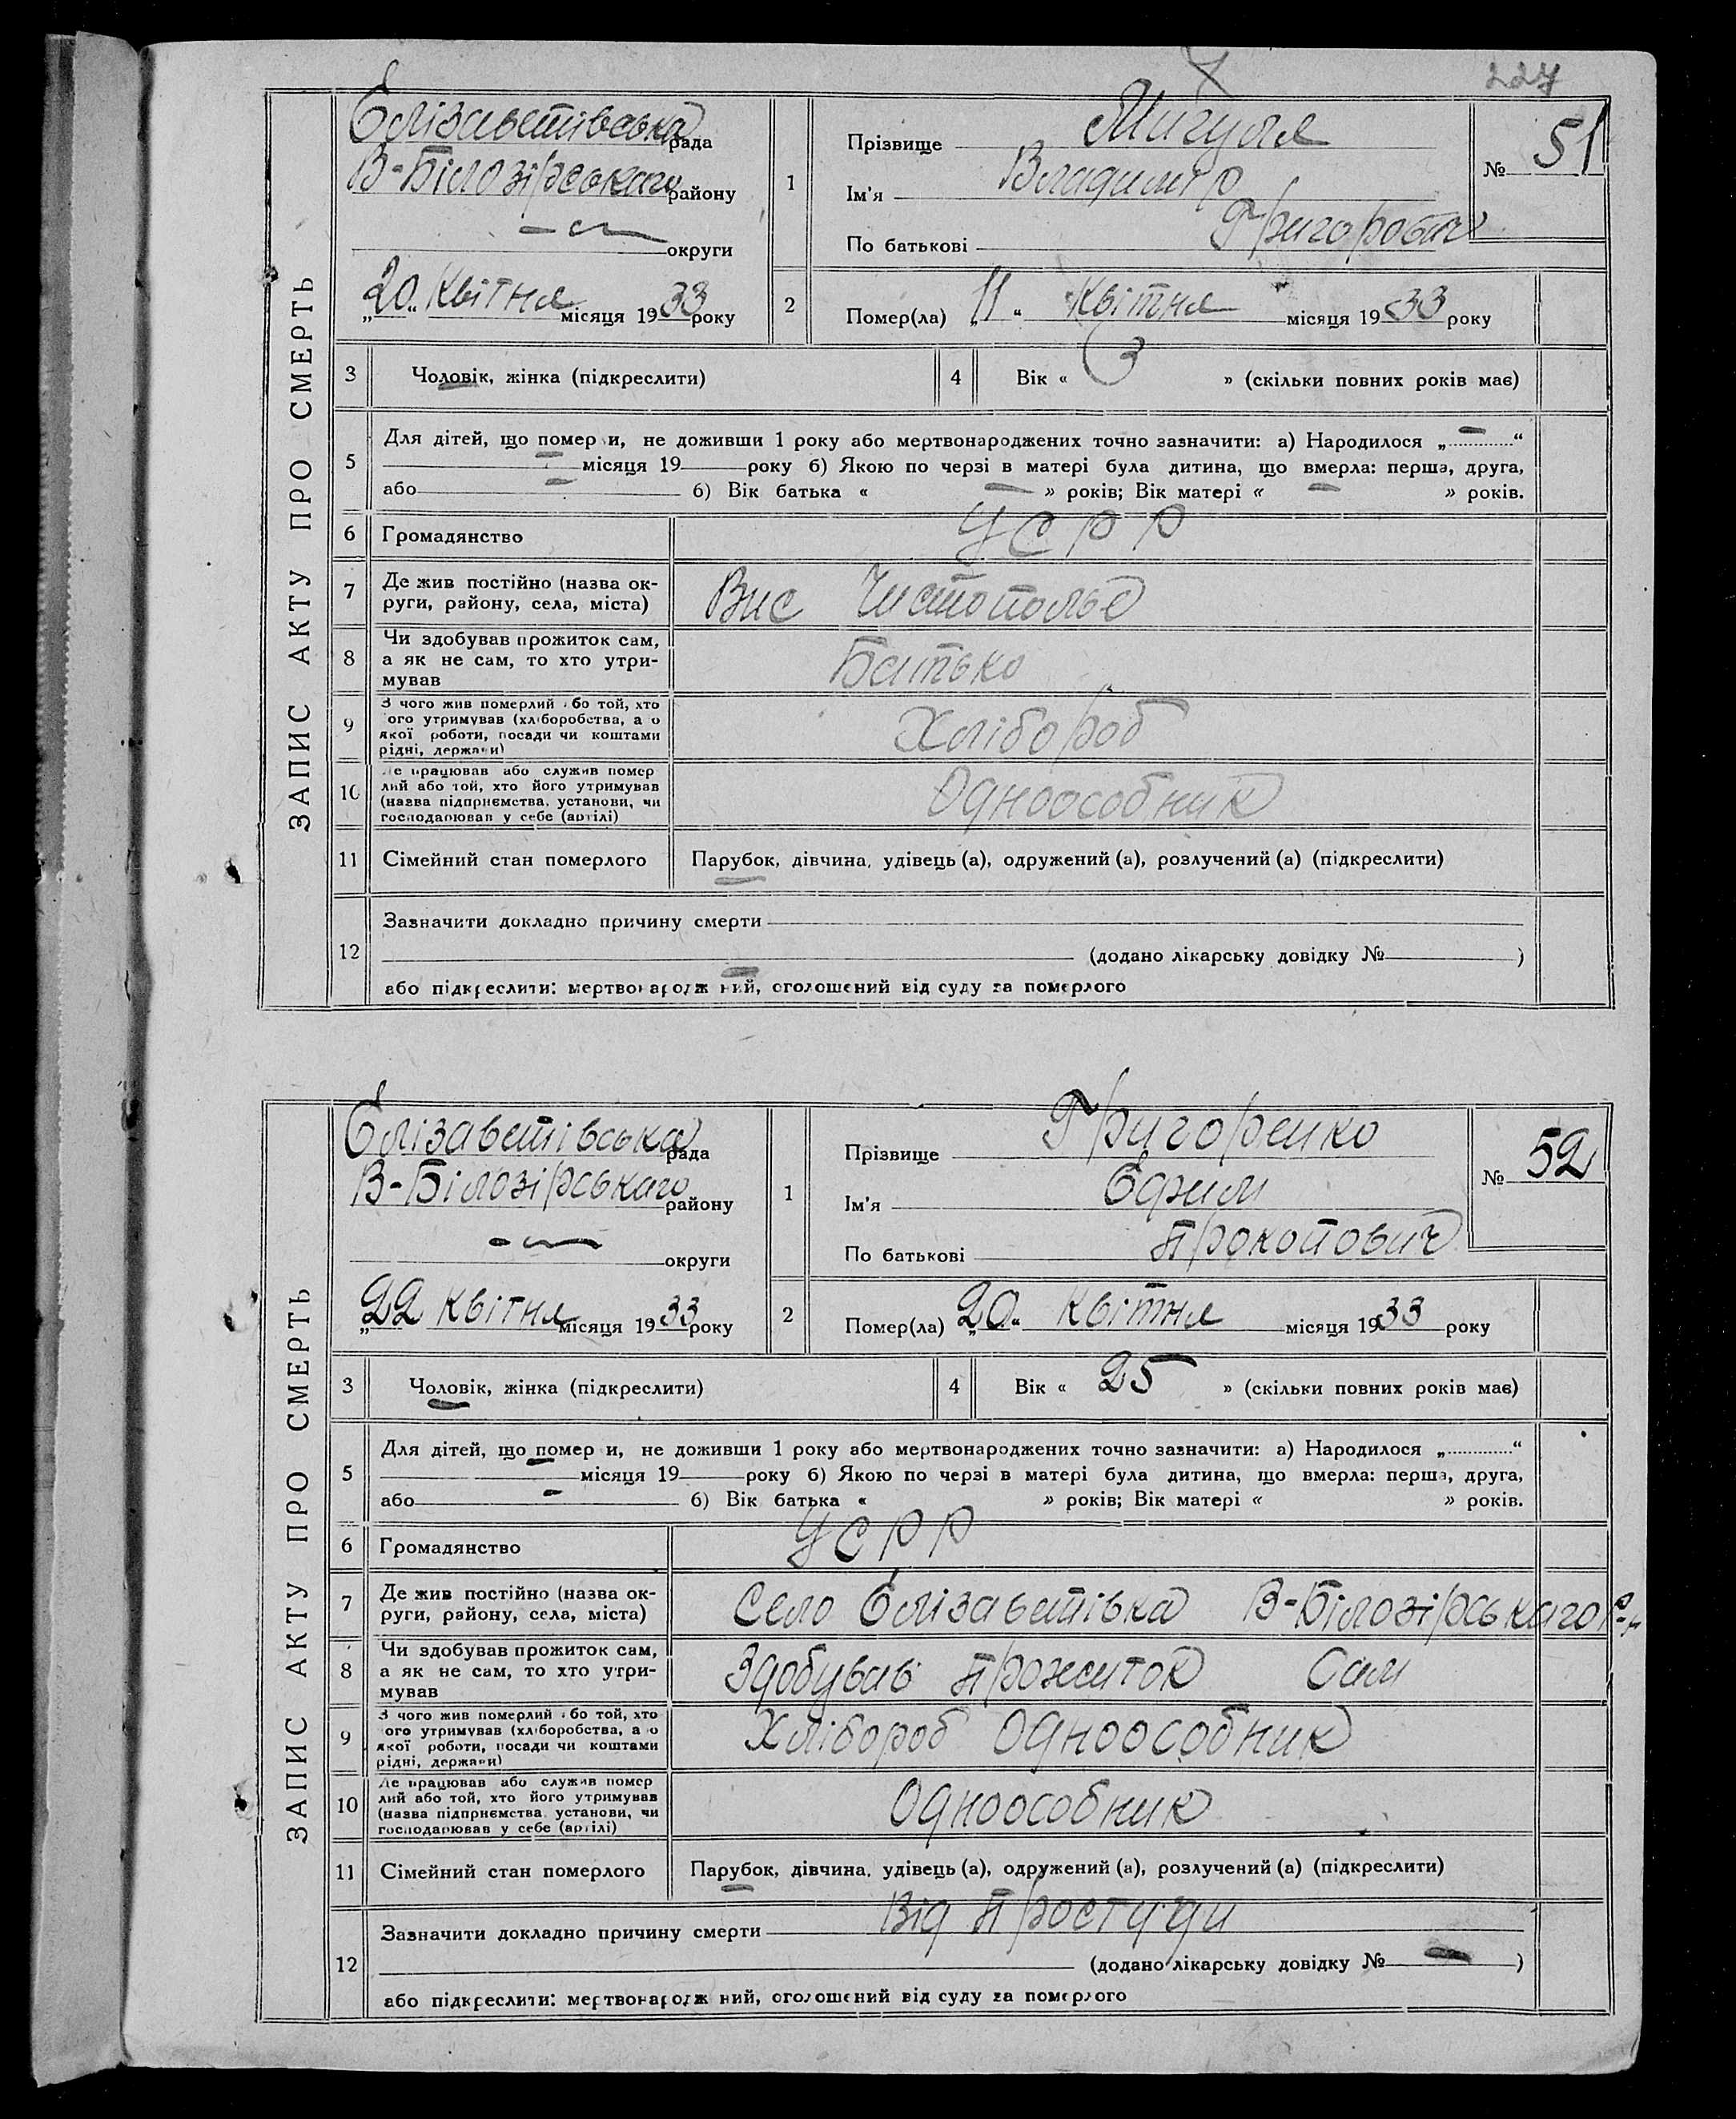 227
ЗАПИС АКТУ ПРО СМЕРТЬ
Єлізаветівська рада
В-Білозірського району
округи
„20„ Квітня місяця 1933 року
1
Прізвище Мигуля
Ім'я Владимір
По батькові Григорович
№ 51
2
Помер(ла) „11“ Квітня місяця 1933 року
3 Чоловік, жінка (підкреслити)
4 Вік « 3 » (скільки повних років має)
5
Для дітей, що помер и, не доживши 1 року або мертвонароджених точно зазначити: а) Народилося „ “
місяця 19 року б) Якою по черзі в матері була дитина, що вмерла: перша, друга,
або б) Вік батька « » років; Вік матері « » років.
6 Громадянство УСРР
7 Де жив постійно (назва ок-
руги, району, села, міста) Вис Чистополье
8 Чи здобував прожиток сам,
а як не сам, то хто утри-
мував Батько
9 З чого жив померлий або той, хто
ого утримував (хліборобства, а о
якої роботи, посади чи коштами
рідні, держави) Хлібороб
10 Де працював або служив помер
лий або той, хто його утримував
(назва підприємства, установи, чи
господарював у себе (артілі) Одноособник
11 Сімейний стан померлого Парубок, дівчина, удівець (а), одружений (а), розлучений (а) (підкреслити)
12
Зазначити докладно причину смерти
(додано лікарську довідку № )
або підкреслити: мертвонародж ний, оголошений від суду за померлого
ЗАПИС АКТУ ПРО СМЕРТЬ
Єлізаветівська рада
В-Білозірського району
округи
„22 Квітня місяця 1933 року
1
Прізвище Григоренко
Ім'я Єфим
По батькові Прокопович
№ 52
2
Помер(ла) „20“ Квітня місяця 1933 року
3 Чоловік, жінка (підкреслити)
4 Вік « 25 » (скільки повних років має)
5
Для дітей, що помер и, не доживши 1 року або мертвонароджених точно зазначити: а) Народилося „ “
місяця 19 року б) Якою по черзі в матері була дитина, що вмерла: перша, друга,
або б) Вік батька « » років; Вік матері « » років.
6 Громадянство УСРР
7 Де жив постійно (назва ок-
руги, району, села, міста) Село Єлізаветівка В-Білозірського р-н
8 Чи здобував прожиток сам,
а як не сам, то хто утри-
мував Здобував прожиток Сам
9 З чого жив померлий або той, хто
ого утримував (хліборобства, а о
якої роботи, посади чи коштами
рідні, держави) Хлібороб Одноособник
10 Де працював або служив помер
лий або той, хто його утримував
(назва підприємства, установи, чи
господарював у себе (артілі) Одноособник
11 Сімейний стан померлого Парубок, дівчина, удівець (а), одружений (а), розлучений (а) (підкреслити)
12
Зазначити докладно причину смерти Від простуди
(додано лікарську довідку № )
або підкреслити: мертвонародж ний, оголошений від суду за померлого